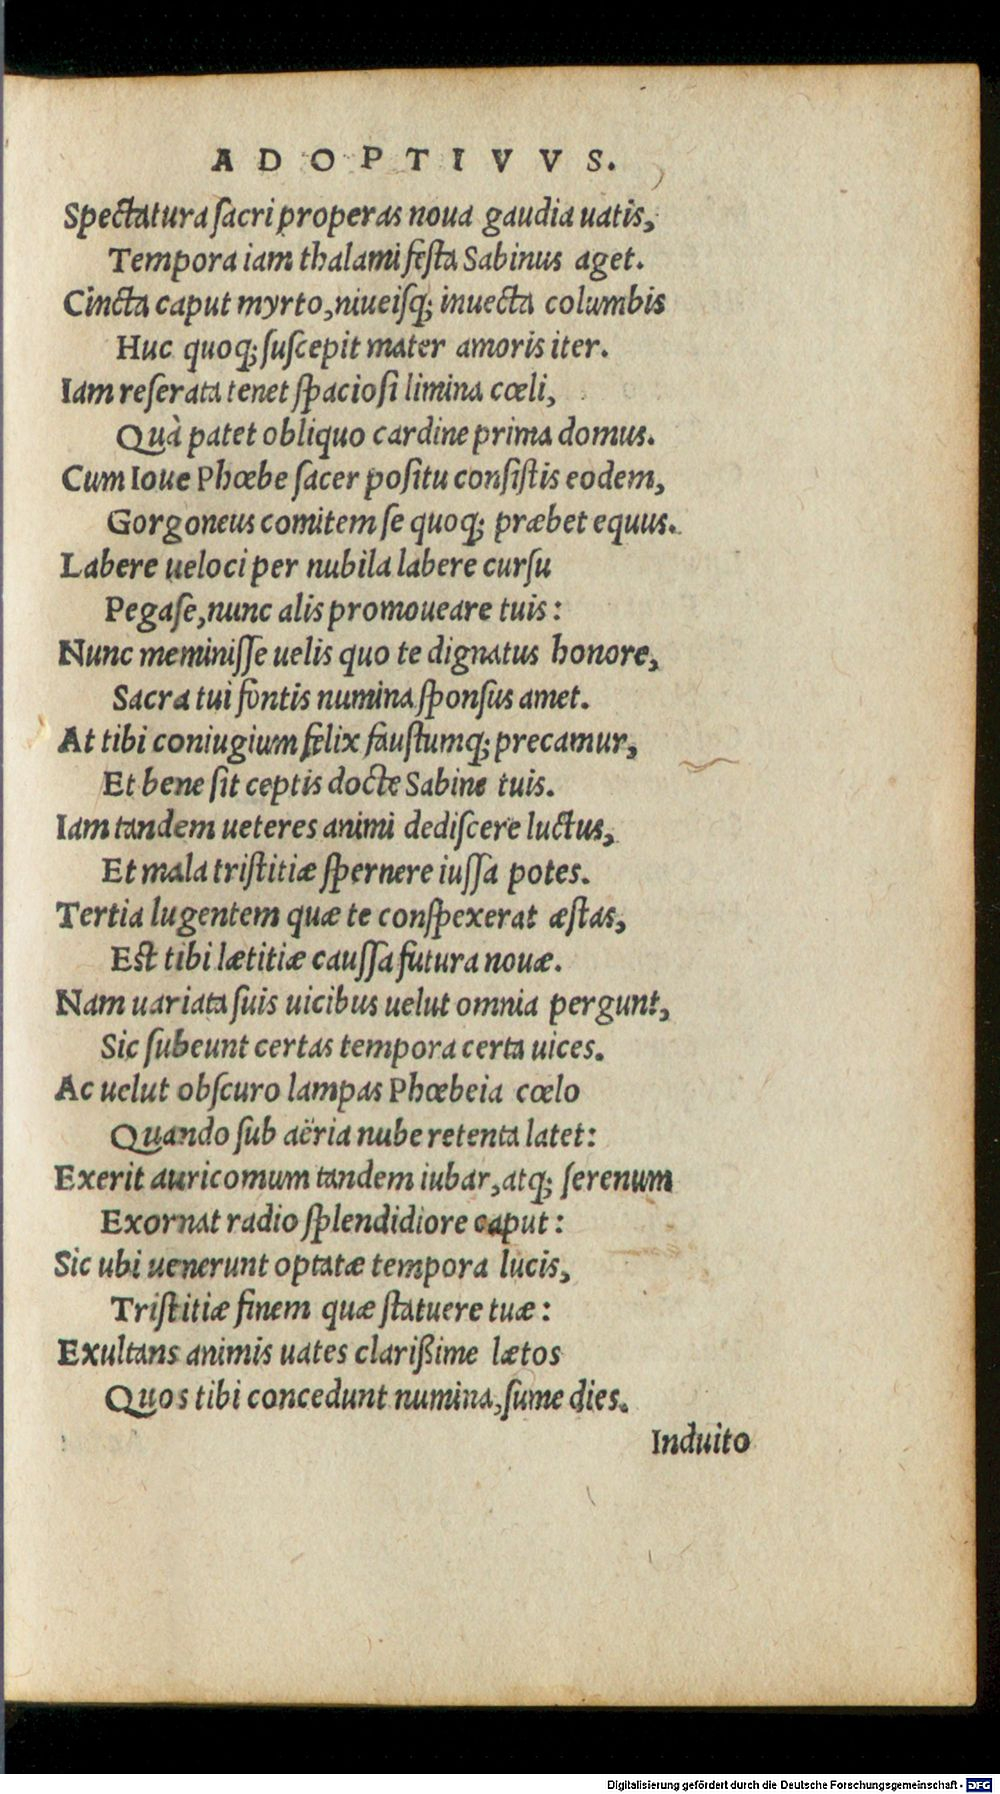 ADOPTIVVS.
Spectatura ſacri properas noua gaudia uatis,
Tempora iam thalami feſta Sabinus aget.
Cincta caput myrto, niueiſq; inuecta columbis
Huc quoq; ſuſcepit mater amoris iter.
Iam reſerata tenet ſpacioſi limina cœli,
Quà patet obliquo cardine prima domus.
Cum Ioue Phœbe ſacer poſitu conſiſtis eodem,
Gorgoneus comitem ſe quoq; præbet equus.
Labere ueloci per nubila labere curſu
Pegaſe, nunc alis promoueare tuis:
Nunc meminiſſe uelis quo te dignatus honore,
Sacra tui fontis numina ſponſus amet.
At tibi coniugium felix fauſtumq; precamur,
Et bene ſit ceptis docte Sabine tuis.
Iam tandem ueteres animi dediſcere luctus,
Et mala triſtitiæ ſpernere iuſſa potes.
Tertia lugentem quæ te conſpexerat æſtas,
Eſt tibi lætitiæ cauſſa futura nouæ.
Nam uariata ſuis uicibus uelut omnia pergunt,
Sic ſubeunt certas tempora certa uices.
Ac uelut obſcuro lampas Phœbeia cœlo
Quando ſub aëria nube retenta latet:
Exerit auricomum tandem iubar, atq; ſerenum
Exornat radio ſplendidiore caput:
Sic ubi uenerunt optatæ tempora lucis,
Triſtitiæ finem quæ ſtatuere tuæ:
Exultans animis uates clarißime lætos
Quos tibi concedunt numina, ſume dies.
Induito
Digitalisierung gefördert durch die Deutsche Forschungsgemeinschaft - DFG